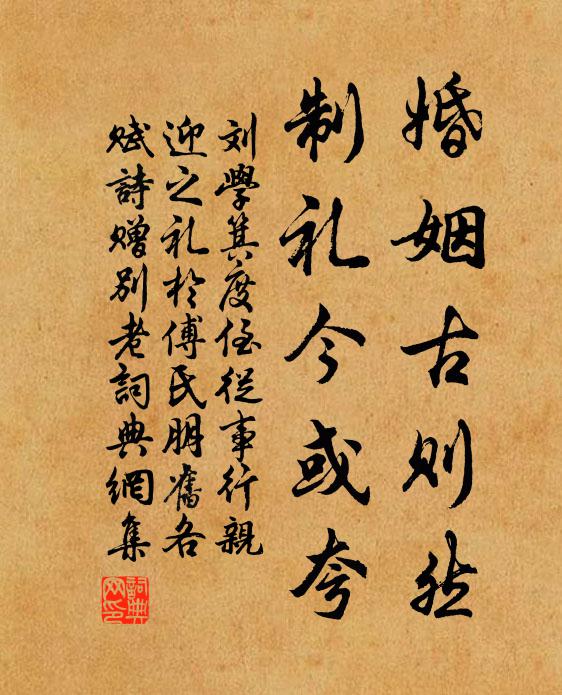 婚姻古则然
制礼今或夸
刘學箕度侄従事行親
迎之礼於傅氏朋舊各
赋詩赠别老詞典網集
詞典
网印